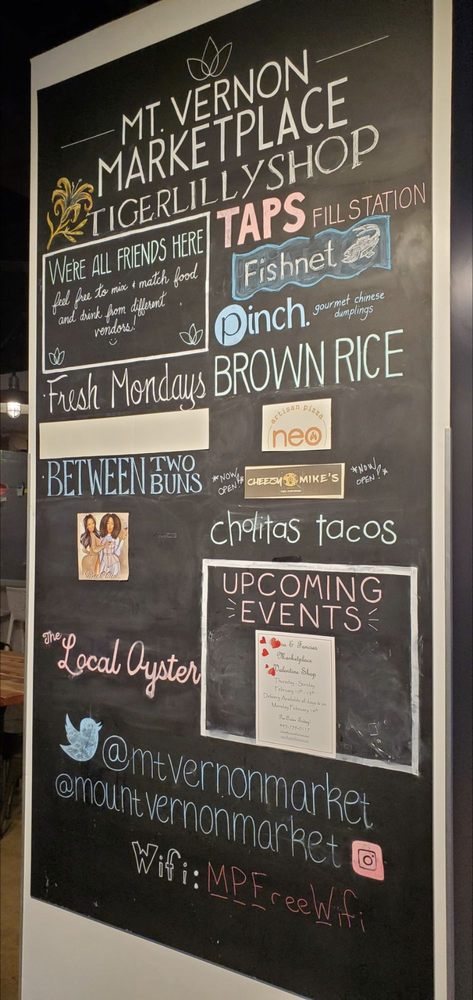 MT. VERNON
MARKETPLACE
TIGERLILLYSHOP
WE'RE ALL FRIENDS HERE
feel free to mix + match food
and drink from different
vendors!
TAPS FILL STATION
Fishnet
Pinch. gourmet chinese
dumplings
Fresh Mondays
BROWN RICE
artisan pizza
neo
BETWEEN TWO
BUNS
*NOW
OPEN!*
CHEEZY MIKE'S
*NOW
OPEN!*
cholitas tacos
UPCOMING
EVENTS
& Fancies
Marketplace
Valentine Shop
Thursday - Sunday
Monday February 14th
The Local Oyster
@mtvernonmarket
@mountvernonmarket
Wifi: MPFreeWifi